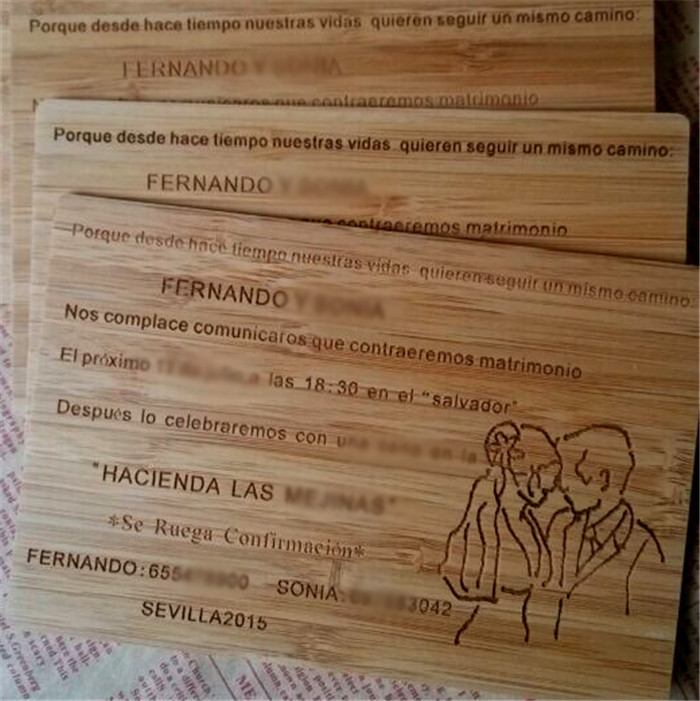 Porque desde hace tiempo nuestras vidas quieren seguir un mismo camino:
FERNANDO Y SONIA
contraeremos matrimonio
Porque desde hace tiempo nuestras vidas quieren seguir un mismo camino:
FERNANDO Y SONIA
contraeremos matrimonio
Porque desde hace tiempo nuestras vidas quieren seguir un mismo camino:
FERNANDO Y SONIA
Nos complace comunicaros que contraeremos matrimonio
El próximo las 18:30 en el "salvador"
Después lo celebraremos con
"HACIENDA LAS
*Se Ruega Confirmación*
FERNANDO:65 SONIA: 3042
SEVILLA2015